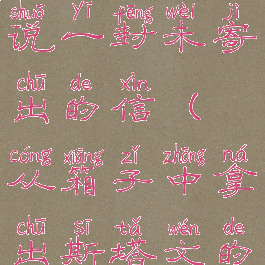 shuō yī fēng wèi jì
说一封未寄
chū de xìn
出的信（
cóng xiāng zǐ zhōng ná
从箱子中拿
chū sī tǎ wén de
出斯塔文的